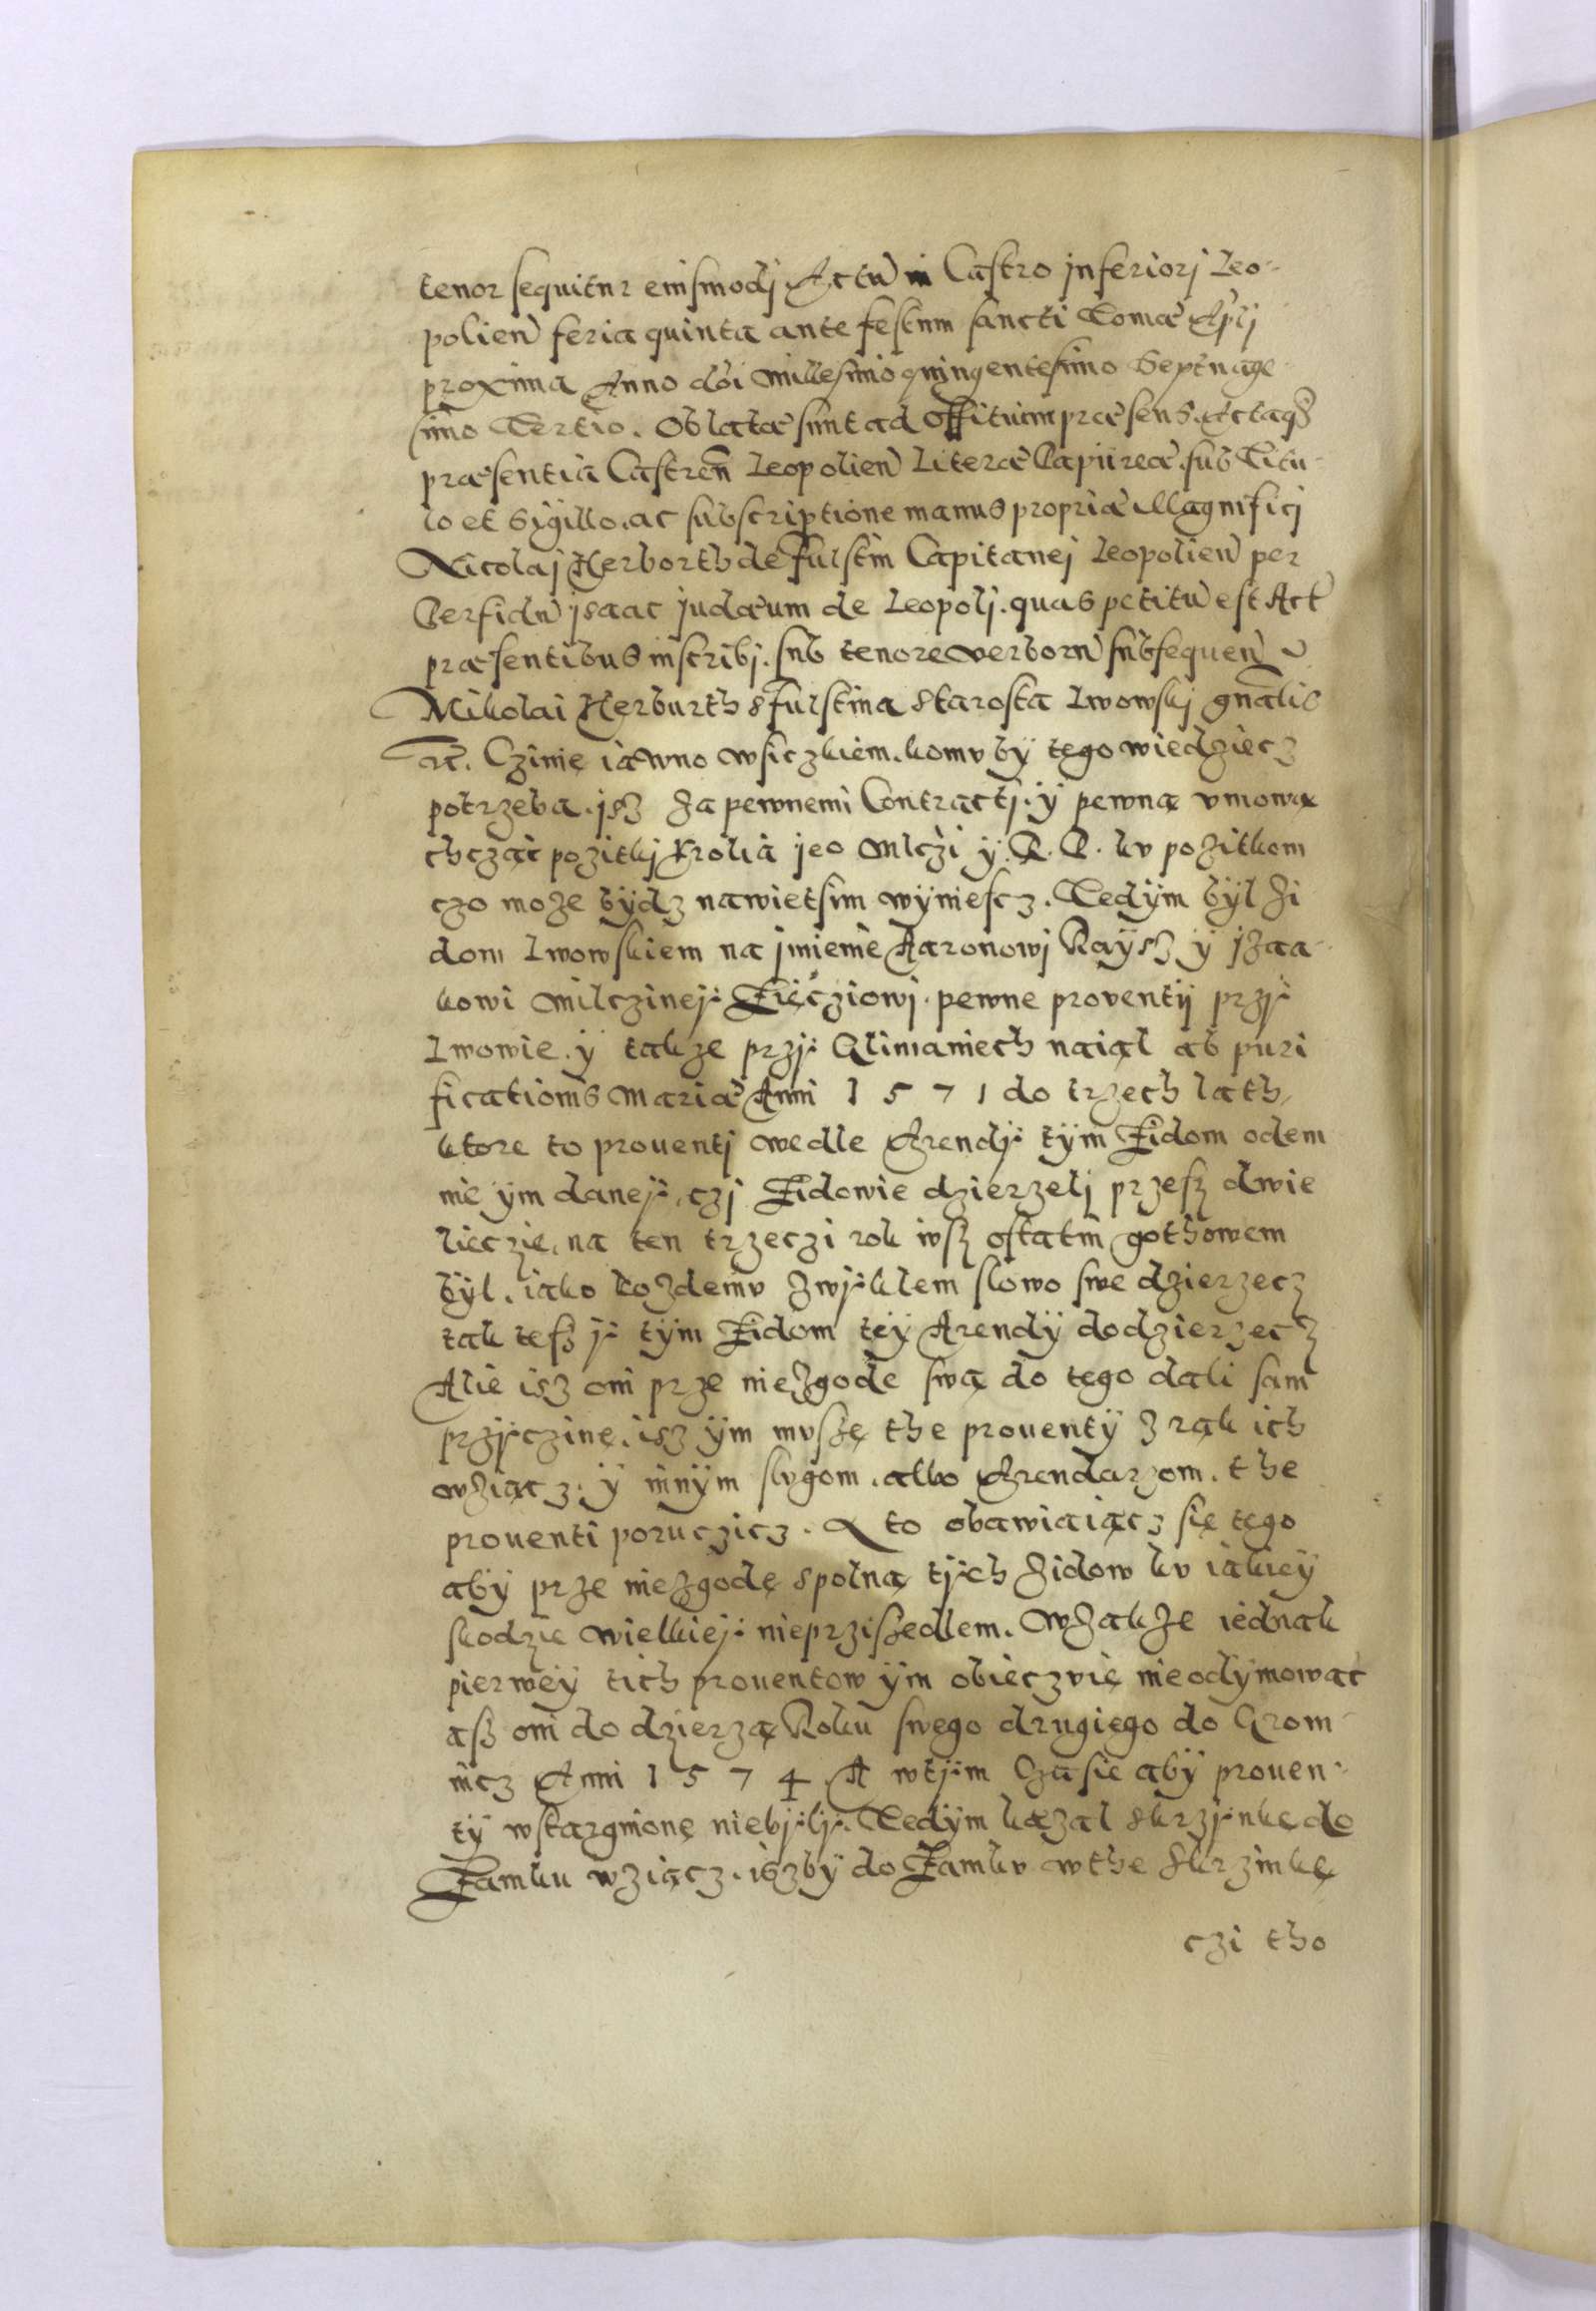 tenor sequitur eiusmodj Actũ in Castro jnferiorj Leo-
polieñ feria quinta ante festum sancti Tomæ Apłj
proxima Anno dñi Millesimo quingentesimo Septuage
simo Tertio. Oblatæ sunt ad Offitium præsens. Actaq3
præsentia Castreñ Leopolieñ Literæ Papiireæ. sub Titu-
lo et Sÿgillo. ac subscriptione manus propriæ Magnificj
Nicolaj Herborth de Fulstin Capitanej Leopolieñ per
Perfidũ jsaac judæum de Leopolj. quas petitũ est Act
præsentibus inscribj. sub tenore verborũ subsequeñ
Mikolai Herburth s Fulstina Starosta Lwowskj gñalis
etc. Czinię iawno wsiczkiem. komv bÿ tego wiedziecz
potrzeba. jsz za pewnemi Contractj. ÿ pewną vmową
chcząc pozitkj Krolia jeo Mlczi ÿ R. P. kv pozitkom
czo może bÿdz nawietsim wÿniescz. Tedÿm bÿl Zi
dom Lwowskiem na jmienie Aaronowj Raÿsz ÿ jzaa-
kowi Milczineÿ Zięcziowj. pewne proventÿ przÿ
Lwowie. ÿ takze przÿ Glinianiech naiąl ab puri
ficationis Mariæ Anni 1571 do trzech lath
ktore to prouentj wedle Arendÿ tÿm Zidom odem
nie ÿm daneÿ, czj Zidowie dzierzelj przesz dwie
lieczie, na ten trzeczi rok jusz ostatni gothowem
bÿl. iako kozdemv zwÿklem slowo swe dzierzecz
tak tesz ÿ tÿm Zidom teÿ Arendÿ dodzierzecz
Alie isz oni prze niezgode swą do tego dali sami
przÿczinę. isz ÿm mvszę the prouentÿ z rąk ich
wziącz. ÿ innÿm slvgom. albo Arendarzom. the
prouenti poruczicz. A to obawiaiącz się tego
abÿ prze niezgodę spolną tÿch Zidow kv iakieÿ
skodzie wielkieÿ nieprziszedlem. Wzakze iednak
pierweÿ tich prouentow ÿm obieczvię nieodÿmowac
asz oni dodzierzą Roku swego drugiego do Grom
nicz Anni 1574 A wtÿm Czasie abÿ prouen-
tÿ wstargnione niebÿlÿ. Tedÿm kazal skrzÿnkę do
Zamku wziącz. iszbÿ do Zamkv w the Skrzinkę
czi tho